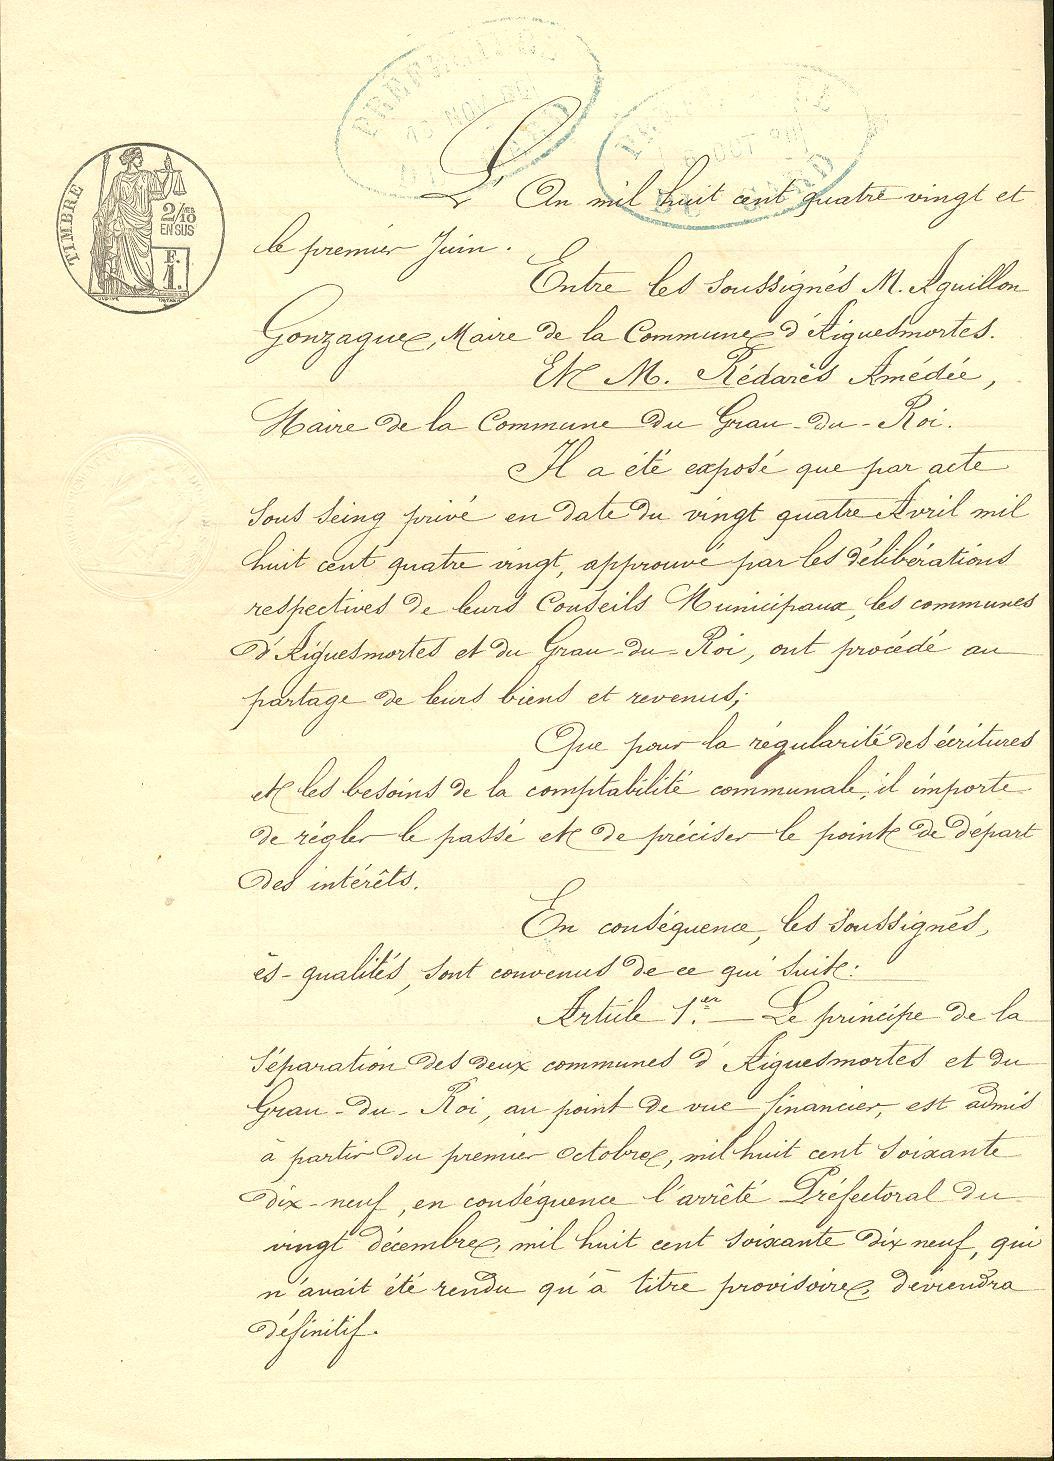 PRÉFECTURE
NOV
GARD
OCT
GARD
TIMBRE
2/10
EN SUS
F.
1.
L'An mil huit cent quatre vingt et
le premier Juin.
Entre les soussignés M. Aguillon
Gonzague, Maire de la Commune d'Aiguesmortes.
Et M. Rédarès Amédée,
Maire de la Commune du Grau-du-Roi.
Il a été exposé que par acte
sous seing privé en date du vingt quatre Avril mil
huit cent quatre vingt, approuvé par les délibérations
respectives de leurs Conseils Municipaux, les communes
d'Aiguesmortes et du Grau-du-Roi, ont procédé au
partage de leurs biens et revenus;
Que pour la régularité des écritures
et les besoins de la comptabilité communale, il importe
de régler le passé et de préciser le point de départ
des intérêts.
En conséquence, les soussignés,
ès-qualités, sont convenus de ce qui suit:
Article 1.er — Le principe de la
séparation des deux communes d'Aiguesmortes et du
Grau-du-Roi, au point de vue financier, est admis
à partir du premier octobre, mil huit cent soixante
dix-neuf, en conséquence l'arrêté Préfectoral du
vingt décembre, mil huit cent soixante dix neuf, qui
n'avait été rendu qu'à titre provisoire, deviendra
définitif.